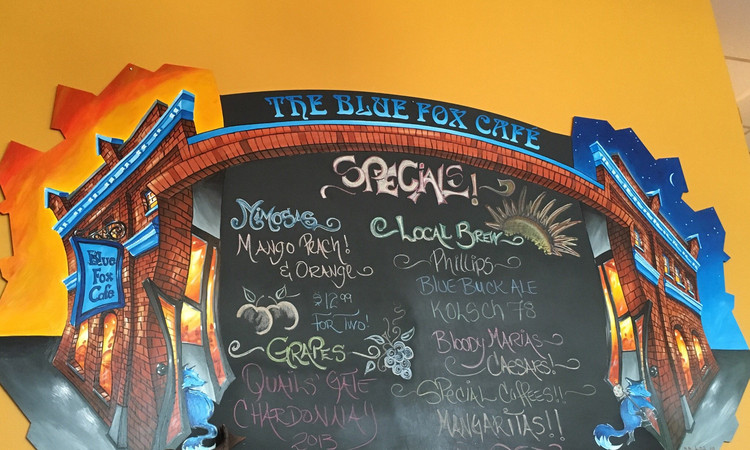 THE BLUE FOX CAFÉ
SPECIALS!
MIMOSAS
MANGO PEACH!
& ORANGE
$12.99
FOR TWO!
GRAPES
QUAILS' GATE
CHARDONNAY
2013
LOCAL BREW
PHILLIPS
BLUE BUCK ALE
KOLSCH 78
BLOODY MARIAS
CAESARS!
SPECIAL COFFEES!!
MANGARITAS!!
Blue
Fox
Cafe